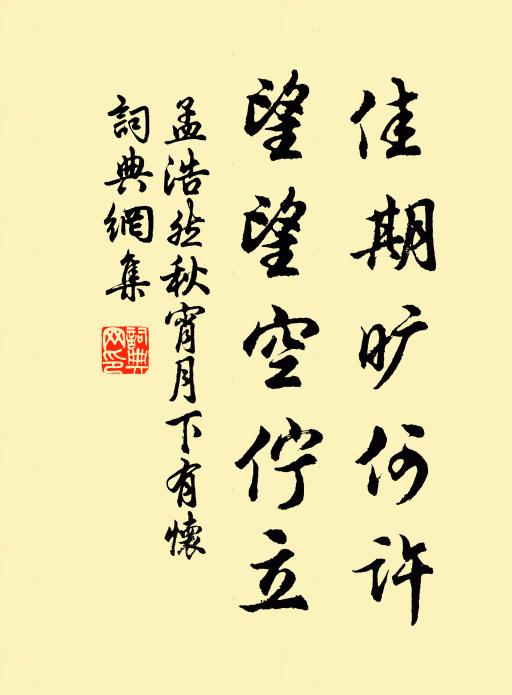 佳期旷何许
望望空佇立
孟浩然秋宵月下有懷
詞典網集
詞典网印